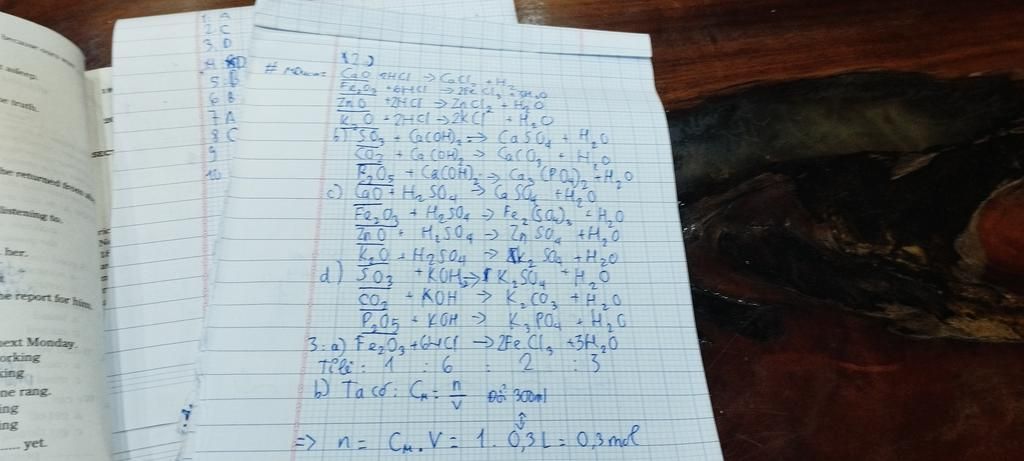 because
asleep.
the truth.
SEC
he returned from
listening to.
her.
he report for him.
next Monday.
orking
king
ne rang.
ing
ing
yet.
1. A
2. C
3. D
4. D
5. B
6. B
7. A
8. C
9
10
(2.)
CaO + 2HCl → CaCl₂ + H₂
Fe₂O₃ + 6HCl → 2FeCl₃ + 3H₂O
ZnO + 2HCl → ZnCl₂ + H₂O
K₂O + 2HCl → 2KCl + H₂O
b) SO₃ + Ca(OH)₂ → CaSO₄ + H₂O
CO₂ + Ca(OH)₂ → CaCO₃ + H₂O
P₂O₅ + Ca(OH)₂ → Ca₃(PO₄)₂ + H₂O
c) CaO + H₂SO₄ → CaSO₄ + H₂O
Fe₂O₃ + H₂SO₄ → Fe₂(SO₄)₃ + H₂O
ZnO + H₂SO₄ → ZnSO₄ + H₂O
K₂O + H₂SO₄ → K₂SO₄ + H₂O
d) SO₃ + KOH → K₂SO₄ + H₂O
CO₂ + KOH → K₂CO₃ + H₂O
P₂O₅ + KOH → K₃PO₄ + H₂O
3: a) Fe₂O₃ + 6HCl → 2FeCl₃ + 3H₂O
Tỉ lệ: 1 : 6 : 2 : 3
b) Ta có: Cₘ = n/V Đổi 300ml
⇕
=> n = Cₘ.V = 1. 0,3L = 0,3mol